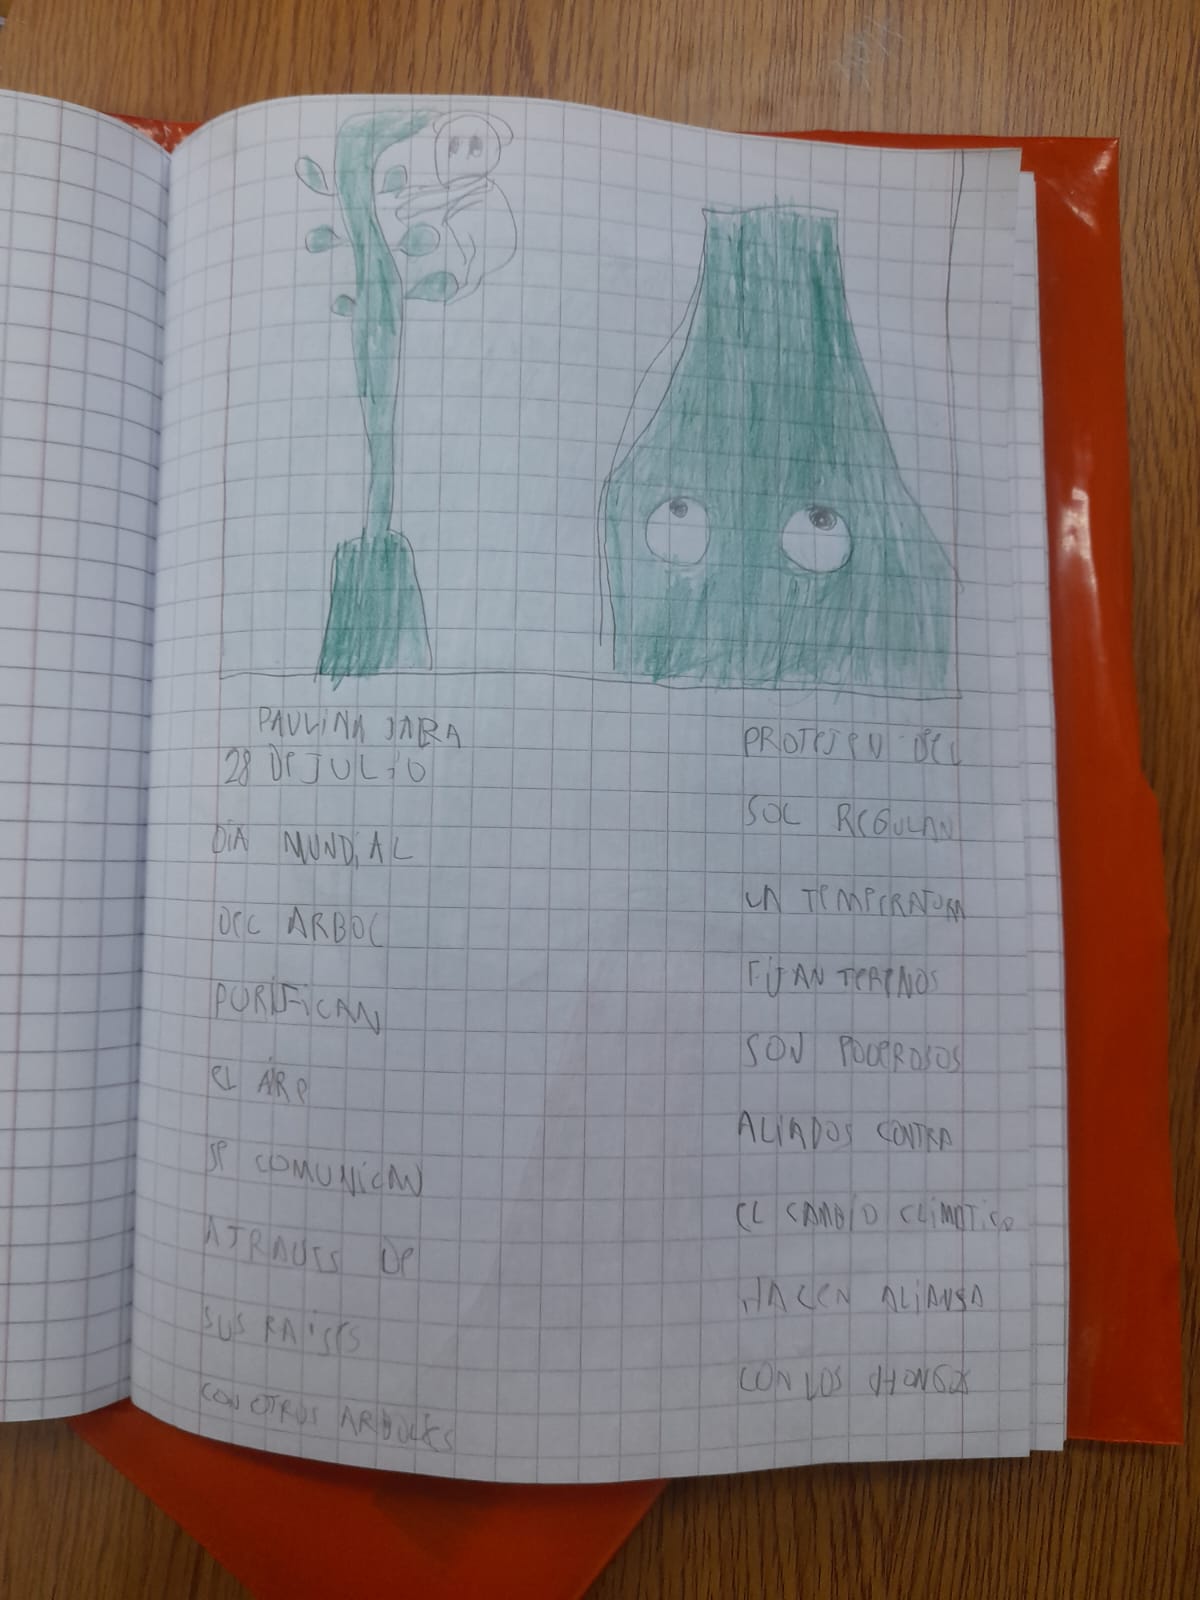 PAULINA JARA
28 DE JULIO
DIA MUNDIAL
DEL ARBOL
PURIFICAN
EL AIRE
SE COMUNICAN
ATRAVES DE
SUS RAISES
CON OTROS ARBOLES
PROTEJEN DEL
SOL REGULAN
LA TEMPERATURA
FIJAN TERENOS
SON PODEROSOS
ALIADOS CONTRA
EL CAMBIO CLIMATICO
HACEN ALIANSA
CON LOS HONGOS